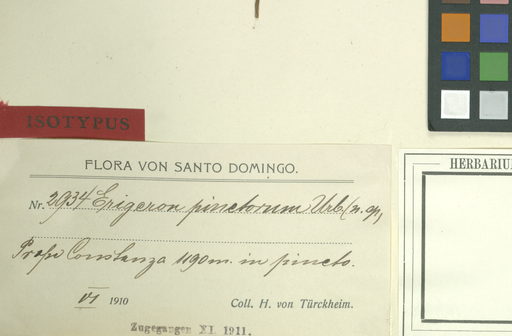 ISOTYPUS
FLORA VON SANTO DOMINGO.
HERBARIUM
Nr. 2934 Erigeron pinetorum Urb. (n. sp.)
Prope Constanza 1190 m. in pineto.
VI 1910 Coll. H. von Türckheim.
Zugegangen XI. 1911.